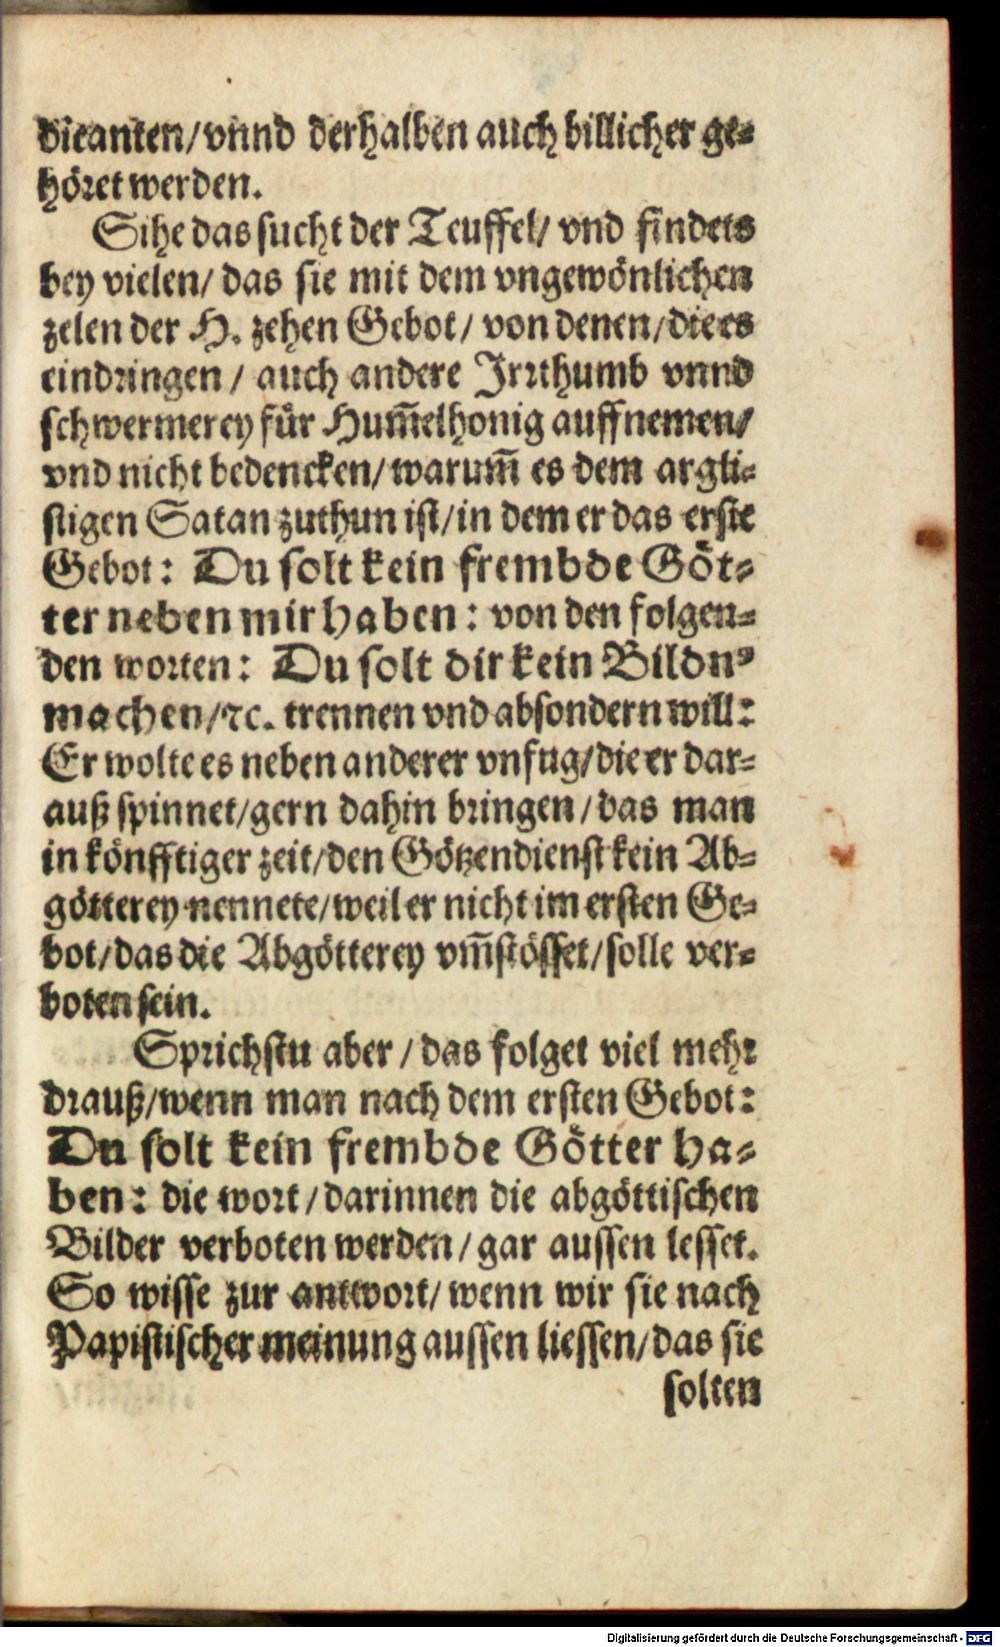 dicanten/vnnd derhalben auch billicher ge-
höret werden.
Sihe das sucht der Teuffel/ vnd findets
bey vielen/ das sie mit dem vngewönlichen
zelen der H. zehen Gebot/ von denen/die es
eindringen/ auch andere Irrthumb vnnd
schwermerey für Hum̃elhonig auffnemen/
vnd nicht bedencken/warum̃ es dem argli-
stigen Satan zuthun ist/in dem er das erste
Gebot: Du solt kein frembde Göt-
ter neben mir haben: von den folgen-
den worten: Du solt dir kein Bildnꝰ
machen/ꝛc. trennen vnd absondern will:
Er wolte es neben anderer vnfug/die er dar-
auß spinnet/gern dahin bringen/das man
in könfftiger zeit/den Götzendienst kein Ab-
götterey nennete/weil er nicht im ersten Ge-
bot/das die Abgötterey vm̃stösset/solle ver-
boten sein.
Sprichstu aber/das folget viel mehr
drauß/wenn man nach dem ersten Gebot:
Du solt kein frembde Götter ha-
ben: die wort/darinnen die abgöttischen
Bilder verboten werden/gar aussen lesset.
So wisse zur antwort/wenn wir sie nach
Papistischer meinung aussen liessen/das sie
solten
Digitalisierung gefördert durch die Deutsche Forschungsgemeinschaft - DFG